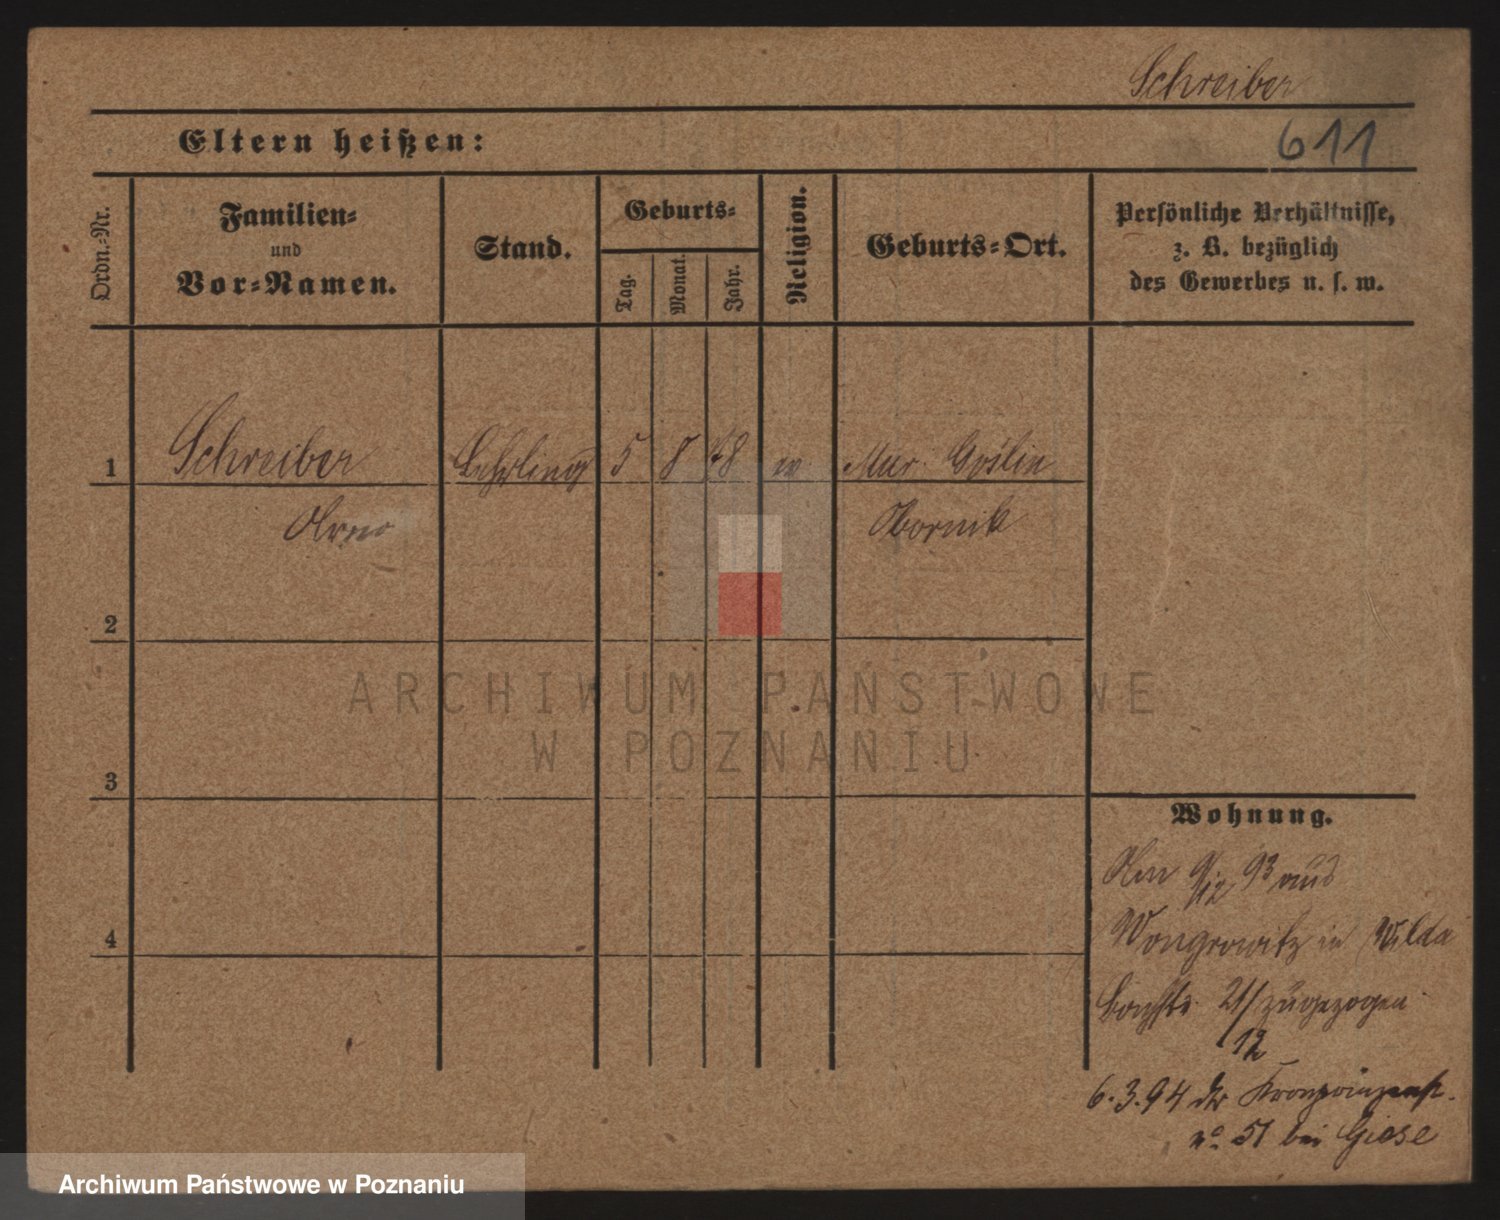 Schreiber
611
Eltern heißen:
Ordn.-Nr.
Familien-
und
Vor-Namen.
Stand.
Geburts-
Tag.
Monat.
Jahr.
Religion.
Geburts-Ort.
Persönliche Verhältnisse,
z. B. bezüglich
des Gewerbes u. s. w.
1 Schreiber Lehrling 5 8 78 ev. Mur. Goślin
Arno Obornik
2
3
4
Wohnung.
Am 9/12 93 aus
Wongrowitz in Wilda
21/ zugezogen
12
6.3.94 Kronprinzenstr.
no 51 bei Giese
ARCHIWUM PAŃSTWOWE
W POZNANIU
Archiwum Państwowe w Poznaniu